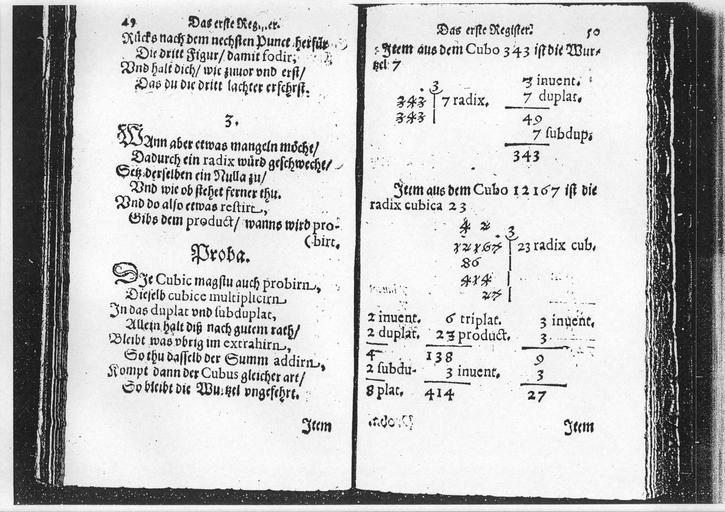 49 Das erste Reg er.
Rücks nach dem nechsten Punct herfür
Die dritt Figur/ damit fodir,
Vnd halt dich/ wie zuuor vnd erst/
Das du die dritt lachter erfehrst.
3.
WAnn aber etwas mangeln möcht/
Dadurch ein radix würd geschwecht/
Setz derselben ein Nulla zu/
Vnd wie ob stehet ferner thu.
Vnd do also etwas restirt,
Gibs dem product/ wanns wird pro-
(birt.
Proba.
DIe Cubic magstu auch probirn,
Dieselb cubice multiplicirn
In das duplat vnd subduplat,
Allein halt diß nach gutem rath/
Bleibt was vbrig im extrahirn,
So thu dasselb der Summ addirn,
Kompt dann der Cubus gleicher art/
So bleibt die Wurtzel vngefehrt.
Item
Das erste Register. 50
Item aus dem Cubo 343 ist die Wur-
tzel 7
3
343 7 radix.
343
3 inuent.
7 duplat.
49
7 subdup.
343
Item aus dem Cubo 12167 ist die
radix cubica 23
4 2
3
12167 23 radix cub.
86
414
27
2 inuent. 6 triplat. 3 inuent.
2 duplat. 23 product. 3
4 138 9
2 subdu- 3 inuent. 3
8 plat. 414 27
Item